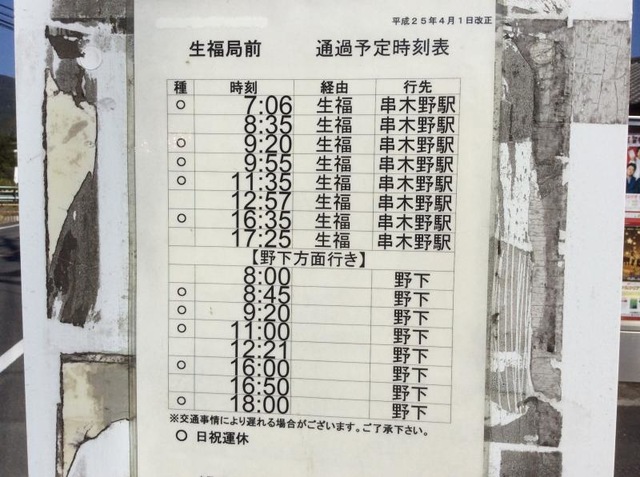 平成25年4月1日改正
生福局前 通過予定時刻表
種 時刻 経由 行先
○ 7:06 生福 串木野駅
8:35 生福 串木野駅
○ 9:20 生福 串木野駅
○ 9:55 生福 串木野駅
○ 11:35 生福 串木野駅
12:57 生福 串木野駅
○ 16:35 生福 串木野駅
17:25 生福 串木野駅
【野下方面行き】
8:00 野下
○ 8:45 野下
○ 9:20 野下
○ 11:00 野下
12:21 野下
○ 16:00 野下
16:50 野下
○ 18:00 野下
※交通事情により遅れる場合がございます。ご了承下さい。
○ 日祝運休